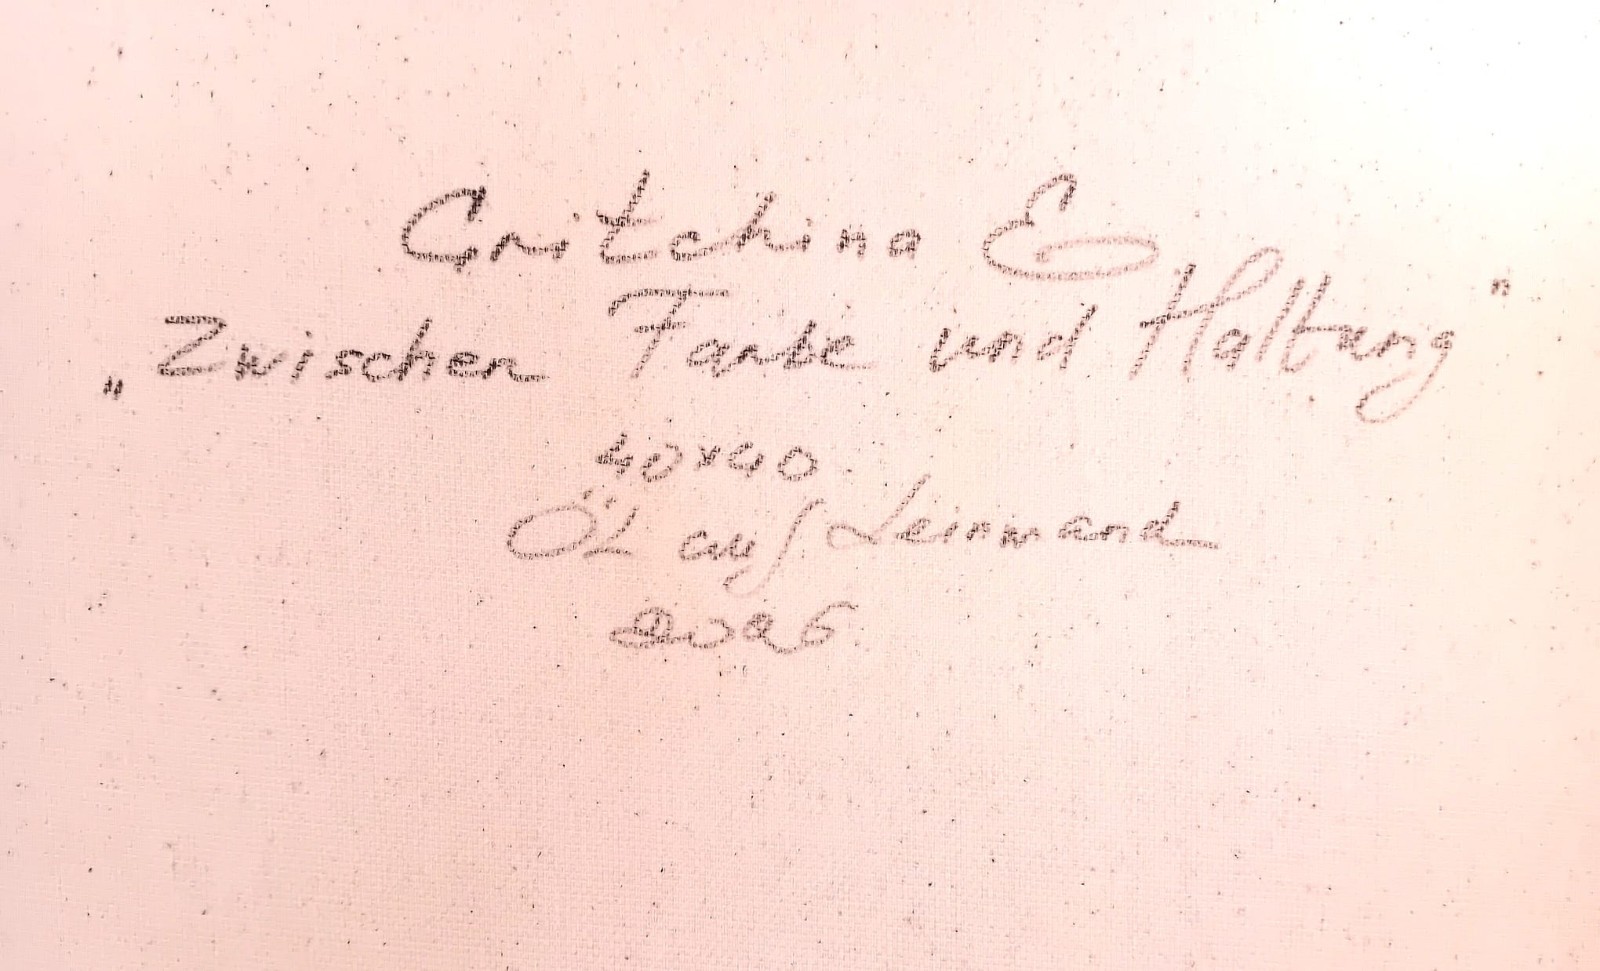 Gritchina E
„Zwischen Farbe und Haltung"
40x40
Öl auf Leinwand
2026